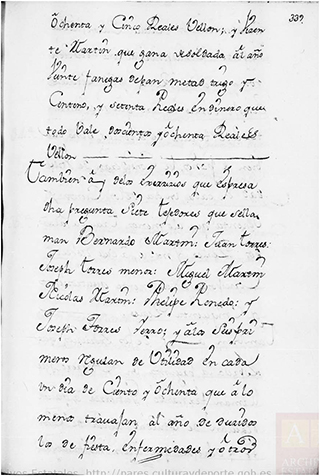 337
ochenta y Cinco Reales Vellon; y Vizen
te Martin que gana de soldada al año
Veinte fanegas de pan metad trigo y
Centeno, y setenta Reales en dinero que
todo Vale doscientos y ochenta Reales
Vellon
tambien ay de los que espresa
dha pregunta siete tejedores que se lla
man Bernardo Martin: Juan torres:
Joseph torres menor: Miguel Martin
Nicolas Martin: Phelipe y
Joseph torres y a los seis pri
meros regulan de Utilidad en cada
un dia de Ciento y ochenta que a lo
menos travajan al año deduzidos
los de fiesta, enfermedades y otros
http://pares.culturaydeporte.gob.es